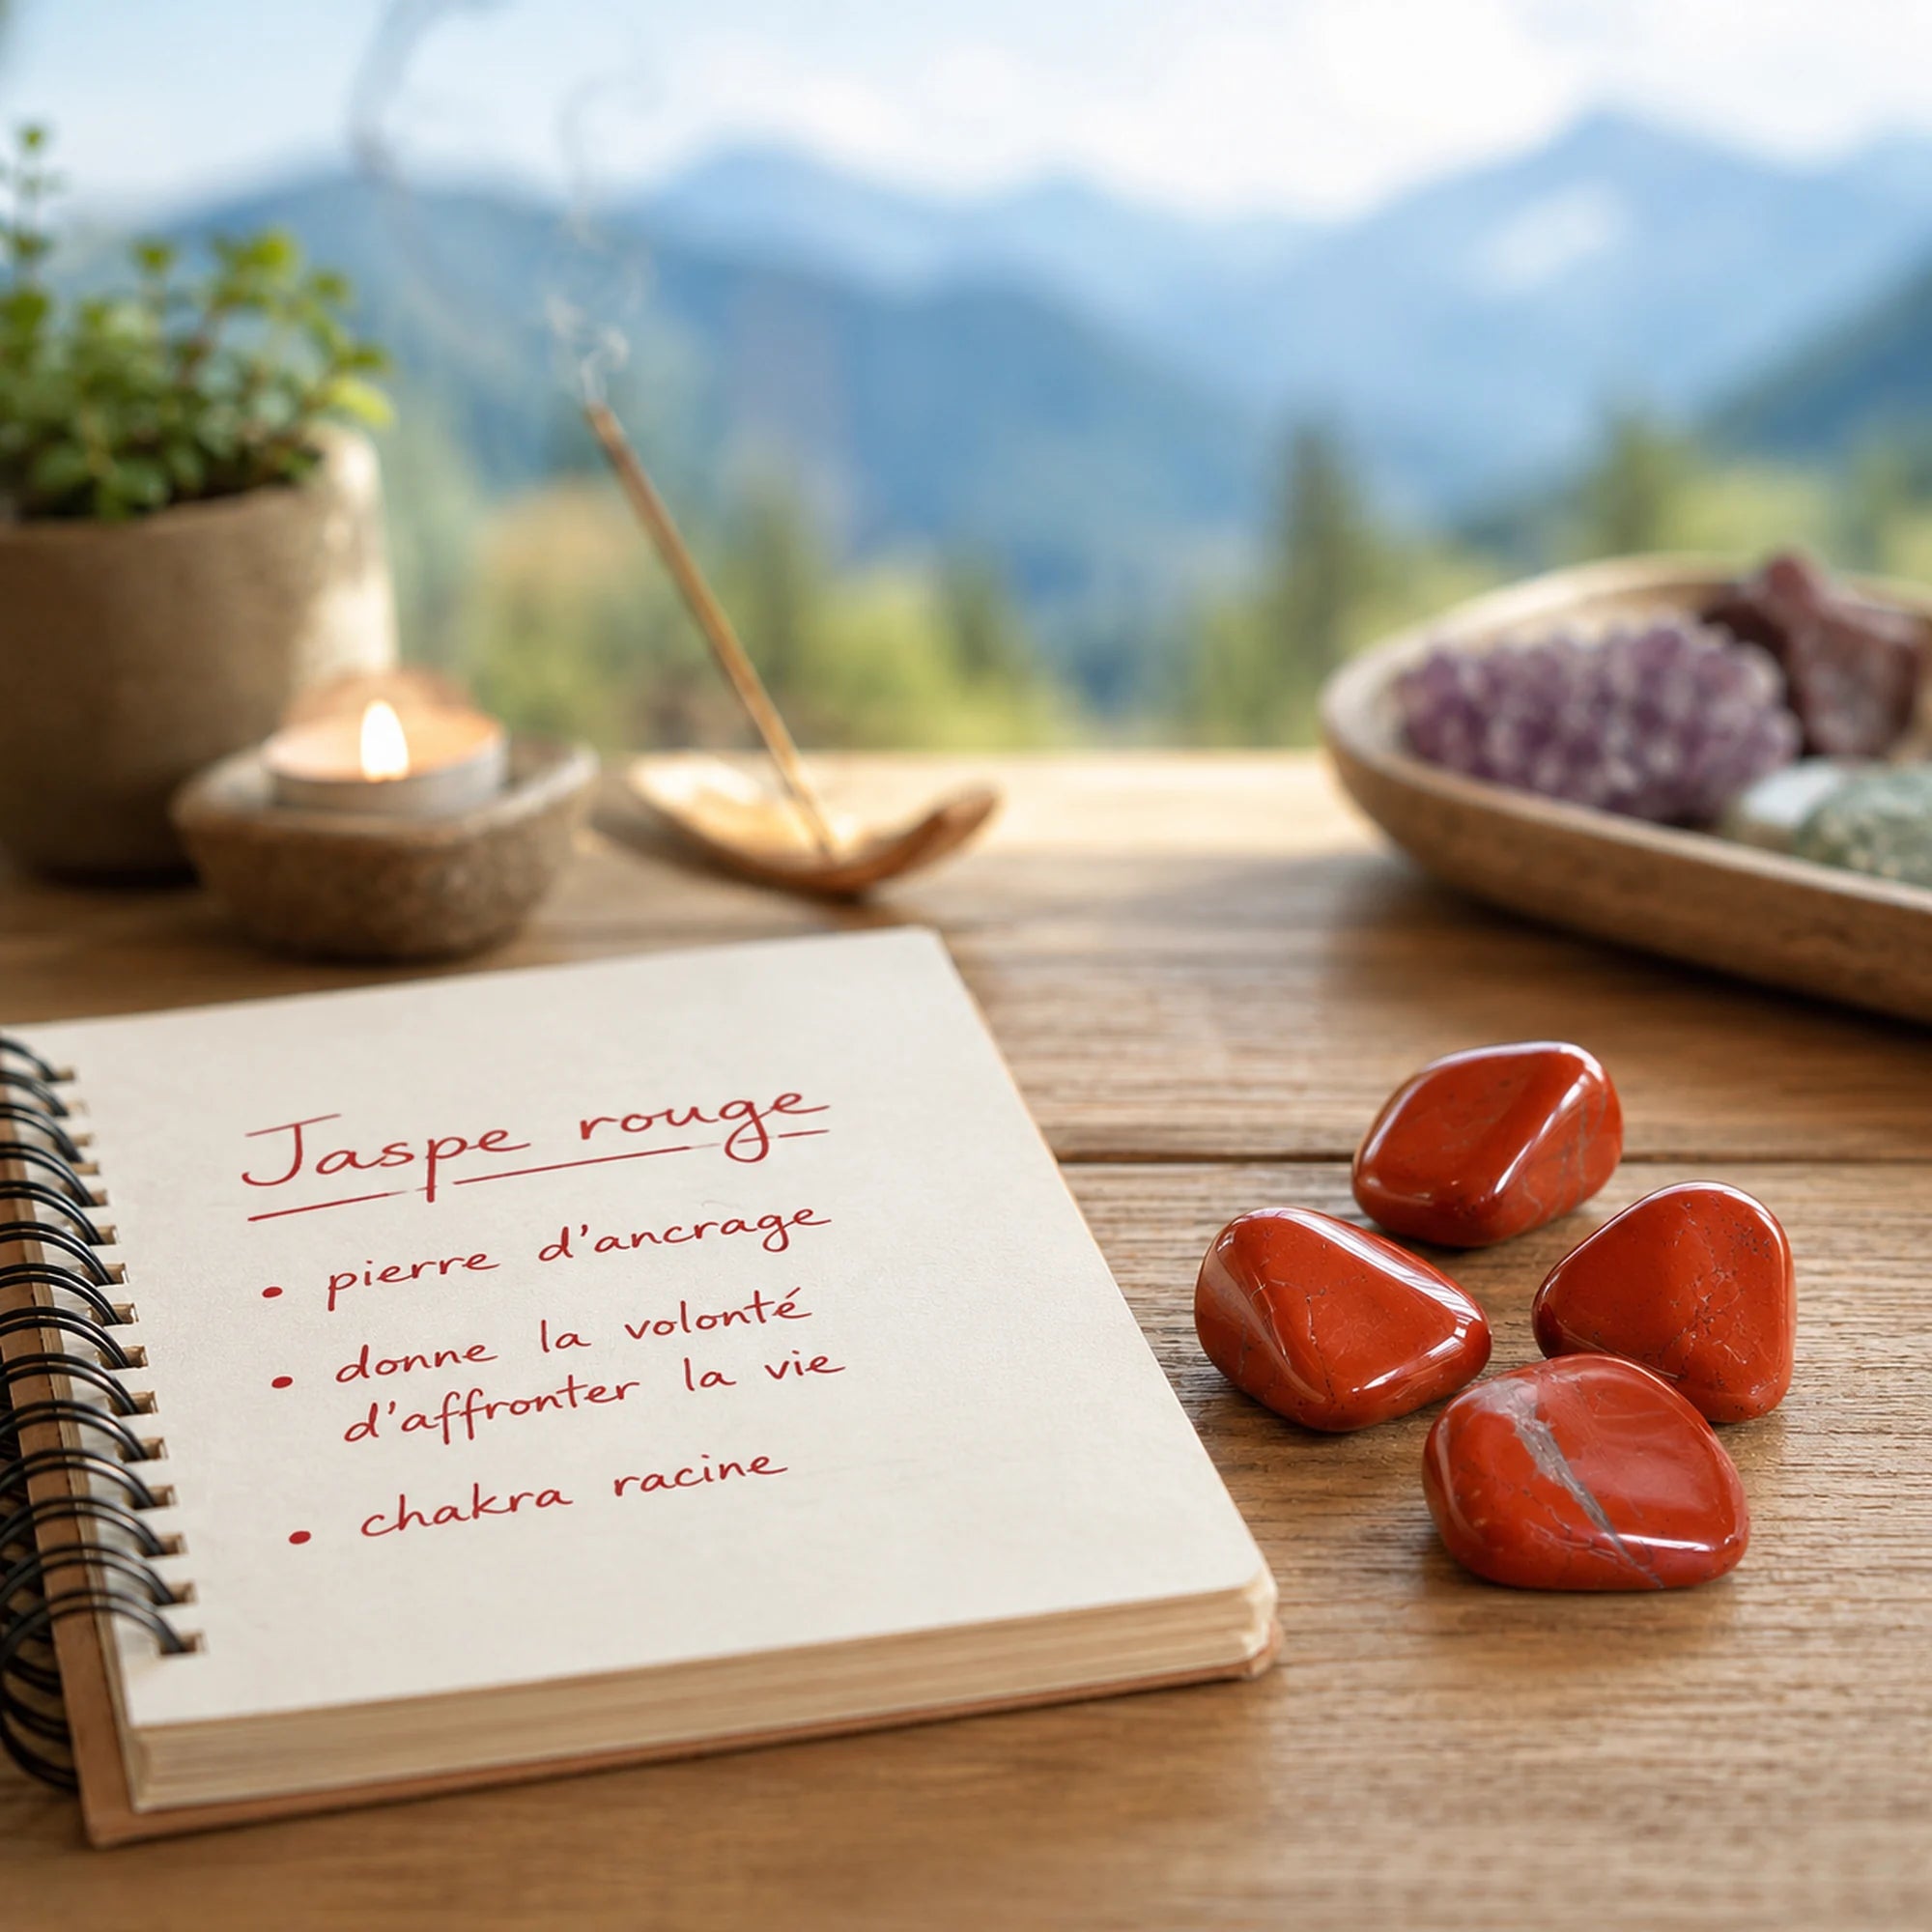 Jaspe rouge
• pierre d'ancrage
• donne la volonté
d'affronter la vie
• chakra racine